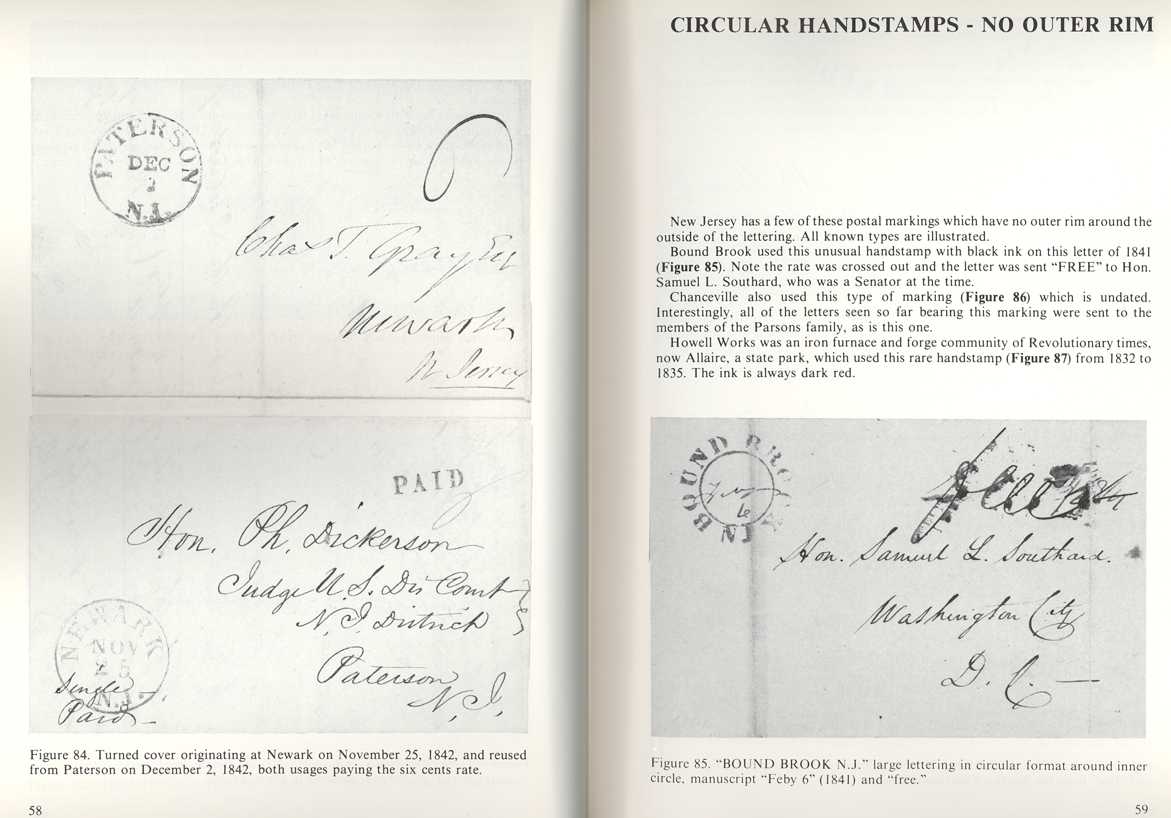 PATERSON
DEC
2
N.J.
6
Chas T. Gray Esq
Newark
N Jersey
PAID
Hon. Ph. Dickerson
Judge U. S. Dis Court
N. J. District
Paterson
N. J.
NEWARK
NOV
25
N.J.
Single
Paid
Figure 84. Turned cover originating at Newark on November 25, 1842, and reused
from Paterson on December 2, 1842, both usages paying the six cents rate.
58
CIRCULAR HANDSTAMPS - NO OUTER RIM
New Jersey has a few of these postal markings which have no outer rim around the
outside of the lettering. All known types are illustrated.
Bound Brook used this unusual handstamp with black ink on this letter of 1841
(Figure 85). Note the rate was crossed out and the letter was sent “FREE” to Hon.
Samuel L. Southard, who was a Senator at the time.
Chanceville also used this type of marking (Figure 86) which is undated.
Interestingly, all of the letters seen so far bearing this marking were sent to the
members of the Parsons family, as is this one.
Howell Works was an iron furnace and forge community of Revolutionary times,
now Allaire, a state park, which used this rare handstamp (Figure 87) from 1832 to
1835. The ink is always dark red.
BOUND BROOK
Feby
6
NJ
free
Hon. Samuel L. Southard.
Washington City
D. C.
Figure 85. “BOUND BROOK N.J.” large lettering in circular format around inner
circle, manuscript “Feby 6” (1841) and “free.”
59